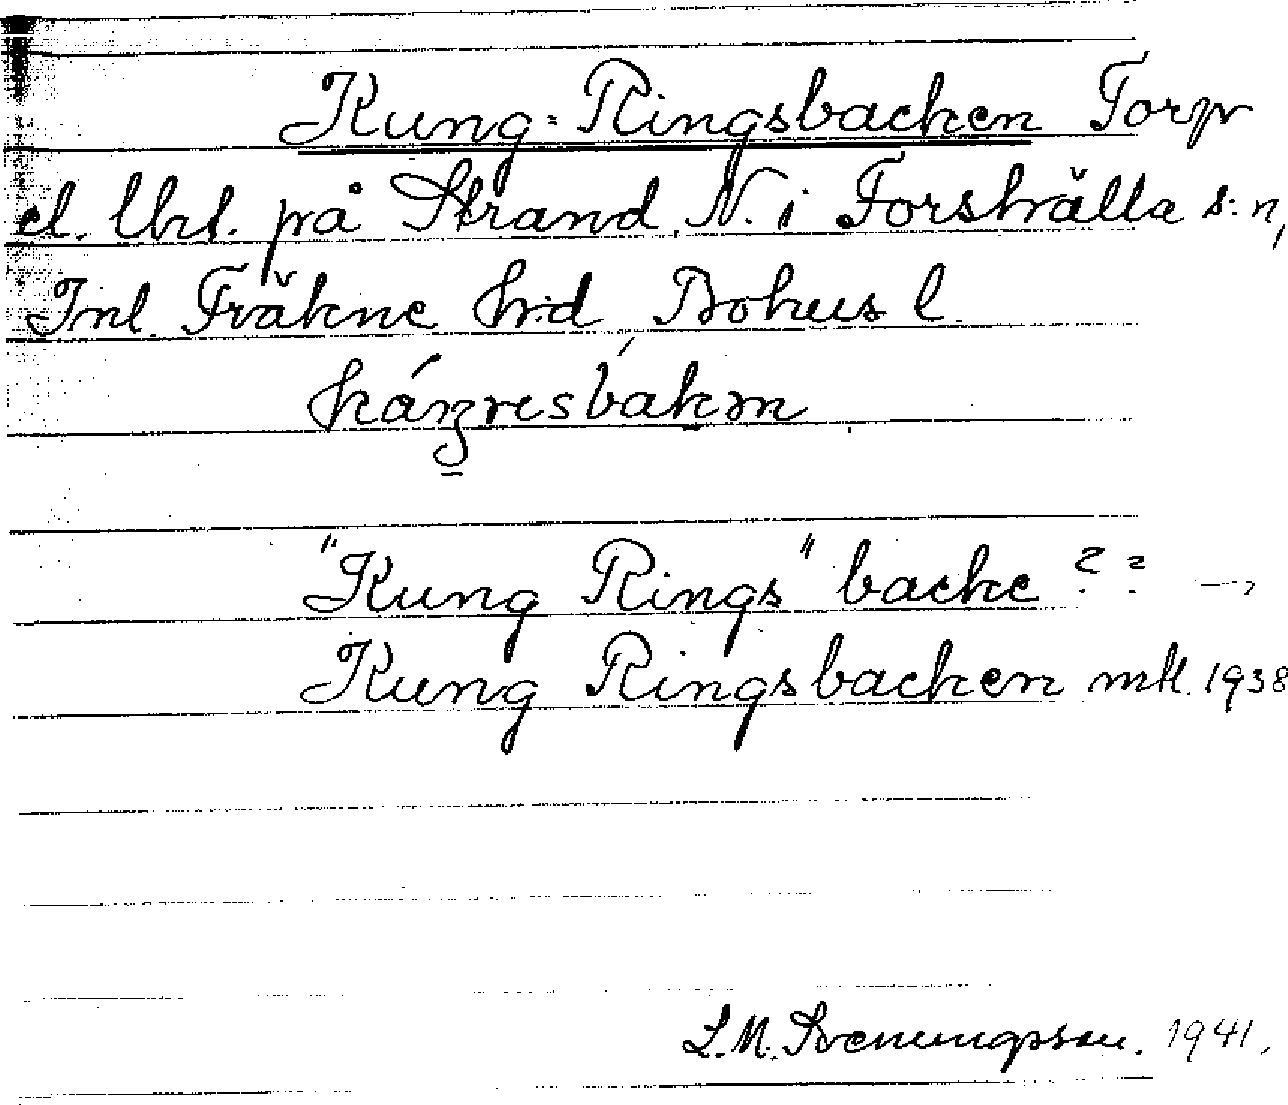 Kung-Ringsbacken Torp
el. lht. på Strand N. i Forshälla s:n,
Inl. Fräkne hrd Bohus l.
"Kung Rings" backe ? ?
Kung Ringsbacken mtl. 1938
L.M. Svenungsson. 1941.